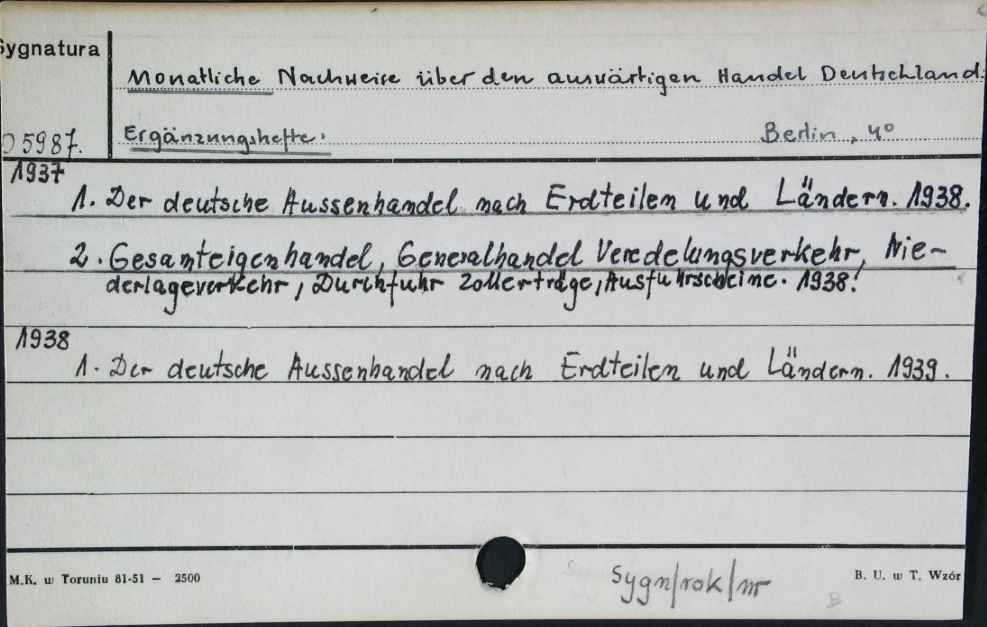 Sygnatura
Monatliche Nachweise über den auswärtigen Handel Deutschland.
Ergänzungshefte. Berlin, 4°
05987.
1937
1. Der deutsche Aussenhandel nach Erdteilen und Ländern. 1938.
2. Gesamteigenhandel, Generalhandel Veredelungsverkehr, Nie-
derlageverkehr, Durchfuhr Zollerträge, Ausfuhrscheine. 1938.
1938
1. Der deutsche Aussenhandel nach Erdteilen und Ländern. 1939.
M.K. w Toruniu 81-51 — 2500
Sygn/rok/nr
B. U. w T. Wzór
B